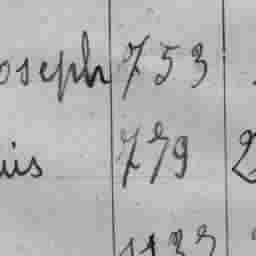 oseph 753
uis 779 2
1133